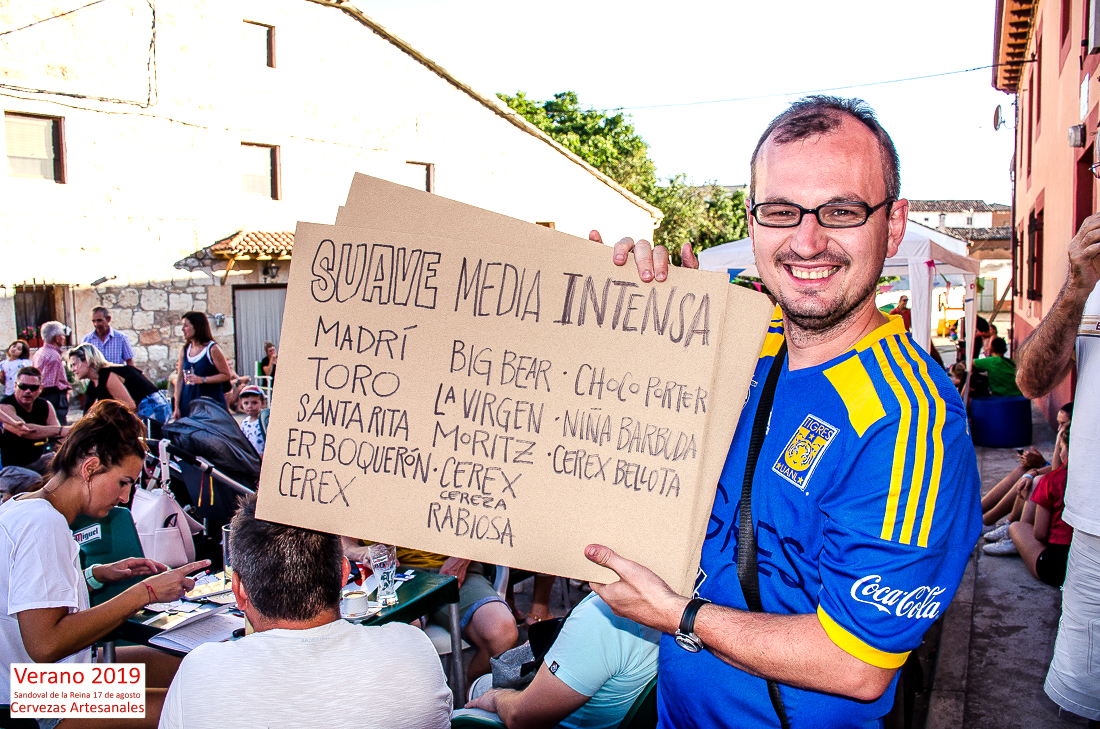 SUAVE MEDIA INTENSA
MADRÍ
TORO
SANTA RITA
ER BOQUERÓN
CEREX
BIG BEAR
LA VIRGEN
MORITZ
CEREX
CEREZA
RABIOSA
CHOCO PORTER
NIÑA BARBUDA
CEREX BELLOTA
TIGRES
UANL
Coca-Cola
Miguel
Verano 2019
Sandoval de la Reina 17 de agosto
Cervezas Artesanales